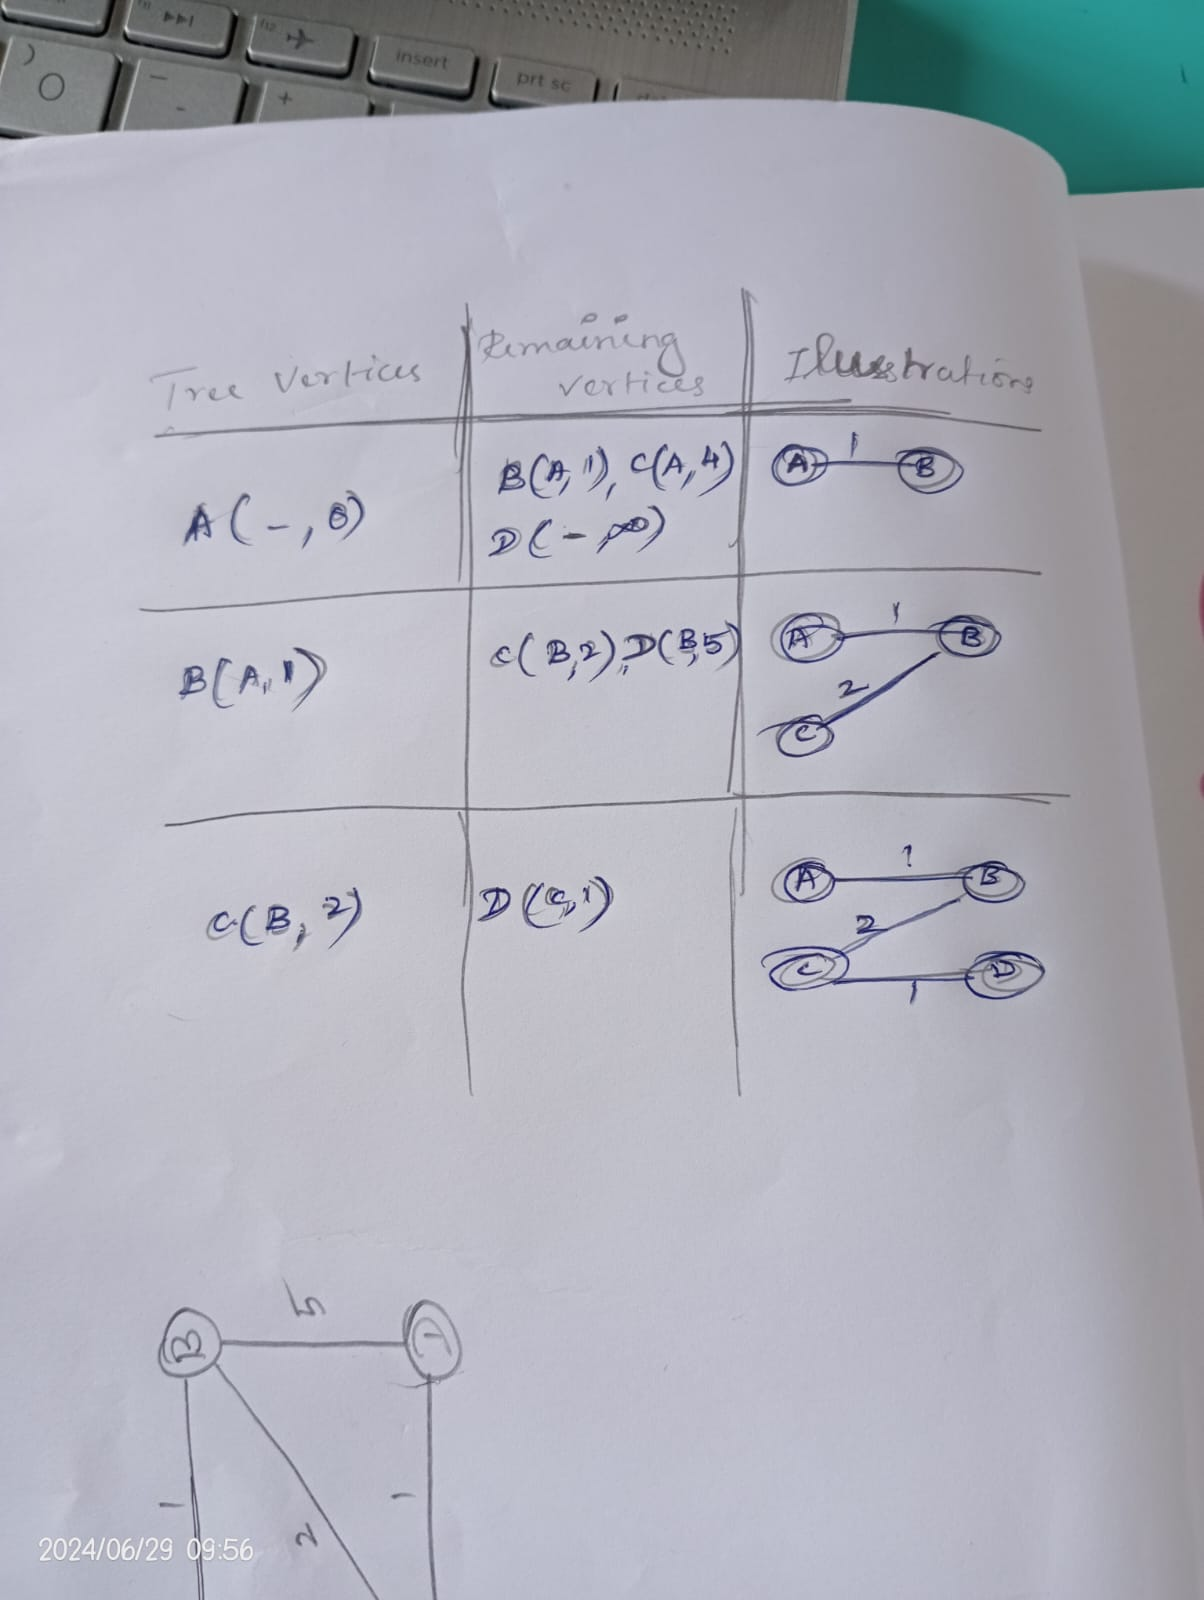 f11
f12
insert
prt sc
Tree Vertices
Remaining
vertices
Illustrations
A(-, 0)
B(A, 1), C(A, 4)
D(- ∞)
A 1 B
B(A, 1)
C(B,2), D(B,5)
A 1 B
2
C
C(B, 2)
D(C,1)
A 1 B
2
C D
1
5
B
1
2
1
2024/06/29 09:56